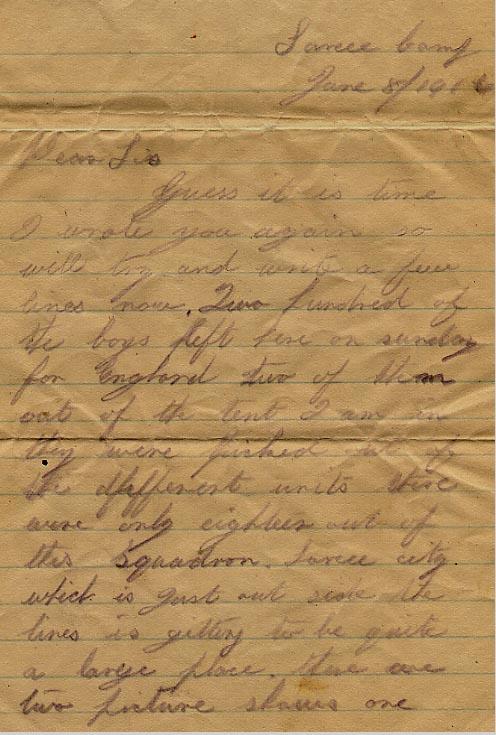 Sarcee Camp
June 8/1916
Dear Sis
Guess it is time
I wrote you again so
will try and write a few
lines now. Two hundred of
the boys left here on sunday
for England two of them
out of the tent I am in
they were picked out of
the different units there
were only eighteen out of
this Squadron. Sarcee city
which is just out side the
lines is getting to be quite
a large place. there are
two picture shows one